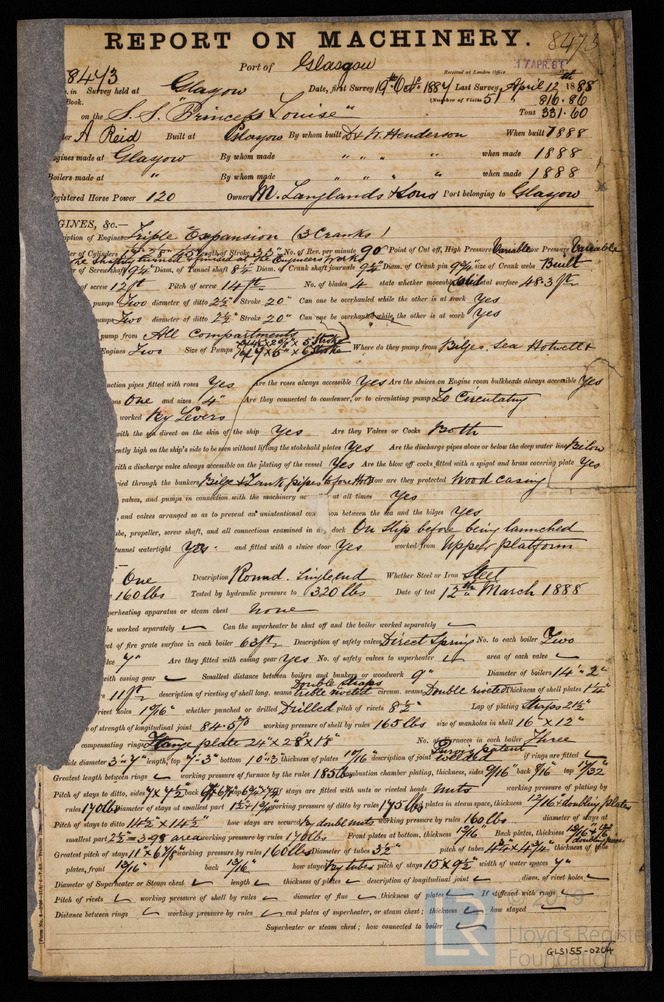 REPORT ON MACHINERY.
8473
Port of Glasgow
Received at London Office 17 APR. 88
8473
Survey held at Glasgow Date, first Survey 19th Octr. 1887 Last Survey April 12th 1888
Book. (Number of Visits 51) 816.86
on the S.S. "Princess Louise" Tons 331.60
A Reid Built at Glasgow By whom built D & W. Henderson When built 1888
ngines made at Glasgow By whom made " " " " when made 1888
Boilers made at " By whom made " " " " when made 1888
egistered Horse Power 120 Owner M. Langlands & Sons Port belonging to Glasgow
GINES, &c.—
iption of Engines Triple Expansion (3 Cranks)
of Cylinders Length of Stroke No. of Rev. per minute 90 Point of Cut off, High Pressure Variable Pressure Variable
of Screw shaft 9¼" Diam. of Tunnel shaft 8¾ Diam. of Crank shaft journals 9¼" Diam. of Crank pin 9¾" size of Crank webs Built
of screw 12 ft Pitch of screw 14 ft No. of blades 4 state whether moveable Solid total surface 48.3 ft
pumps Two diameter of ditto 2½" Stroke 20" Can one be overhauled while the other is at work Yes
pumps Two diameter of ditto 2½" Stroke 20" Can one be overhauled while the other is at work Yes
pump from All Compartments
Engines Two Size of Pumps Where do they pump from Bilges. Sea Hotwell &
ction pipes fitted with roses Yes Are the roses always accessible Yes Are the sluices on Engine room bulkheads always accessible Yes
One and sizes 4" Are they connected to condenser, or to circulating pump To Circulating
worked By Levers
with the direct on the skin of the ship Yes Are they Valves or Cocks Both
iently high on the ship's side to be seen without lifting the stokehold plates Yes Are the discharge pipes above or below the deep water line Below
with a discharge valve always accessible on the plating of the vessel Yes Are the blow off cocks fitted with a spigot and brass covering plate Yes
ried through the bunkers Bilge & Tank pipes to fore Hold How are they protected Wood casing
valves, and pumps in connection with the machinery ac at all times Yes
and valves arranged so as to prevent an unintentional con tion between the sea and the bilges Yes
ube, propeller, screw shaft, and all connections examined in dock On Slip before being launched
tunnel watertight Yes and fitted with a sluice door Yes worked from Upper platform
One Description Round. Single end Whether Steel or Iron Steel
160 lbs Tested by hydraulic pressure to 320 lbs Date of test 12th March 1888
perheating apparatus or steam chest None
be worked separately ✓ Can the superheater be shut off and the boiler worked separately ✓
et of fire grate surface in each boiler 63 ft Description of safety valves Direct Spring No. to each boiler Two
les 7" Are they fitted with easing gear Yes No. of safety valves to superheater ✓ area of each valve ✓
with easing gear ✓ Smallest distance between boilers and bunkers or woodwork 9" Diameter of boilers 14'-2"
11 ft description of riveting of shell long. seams Double straps treble riveted circum. seams Double riveted Thickness of shell plates
rivet holes whether punched or drilled Drilled pitch of rivets 8½" Lap of plating Straps 21½"
e of strength of longitudinal joint 84.5 % working pressure of shell by rules 165 lbs size of manholes in shell 16" x 12"
compensating rings Flange plate 24" x 28" x 1⅛" No. of furnaces in each boiler Three
side diameter 3'-7" length, top 7'-3" bottom 10'-3 thickness of plates description of joint Purves patent welded if rings are fitted ✓
Greatest length between rings ✓ working pressure of furnace by the rules 185 lbs combustion chamber plating, thickness, sides 9/16" back 9/16" top 17/32
Pitch of stays to ditto, sides 7" x 7½" back If stays are fitted with nuts or riveted heads nuts working pressure of plating by
rules 170 lbs diameter of stays at smallest part working pressure of ditto by rules 175 lbs plates in steam space, thickness doubling plates
Pitch of stays to ditto 14½" x 14½" how stays are secured By double nuts working pressure by rules 160 lbs diameter of stays at
smallest part 2½" = 3.98 area working pressure by rules 170 lbs Front plates at bottom, thickness 13/16 Back plates, thickness
Greatest pitch of stays 11" x 6⅞" working pressure by rules 160 lbs Diameter of tubes 3½" pitch of tubes thickness of tube
plates, front 13/16" back 13/16" how stayed By tubes pitch of stays 15 x 9½" width of water spaces 7"
Diameter of Superheater or Steam chest ✓ length ✓ thickness of plates ✓ description of longitudinal joint ✓ diam. of rivet holes ✓
Pitch of rivets ✓ working pressure of shell by rules ✓ diameter of flue ✓ thickness of plates ✓ If stiffened with rings ✓
Distance between rings ✓ working pressure by rules ✓ end plates of superheater, or steam chest; thickness ✓ how stayed ✓
Superheater or steam chest; how connected to boiler ✓
© 2019
Lloyd's Register
Foundation
GLS155-0204